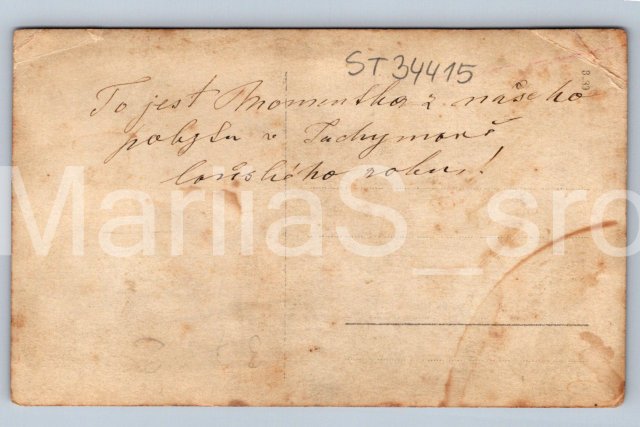 ST 34415
B.39
To jest Momentka z našeho
pobytu v Jachymově
loňského roku!
MariiaS_sro